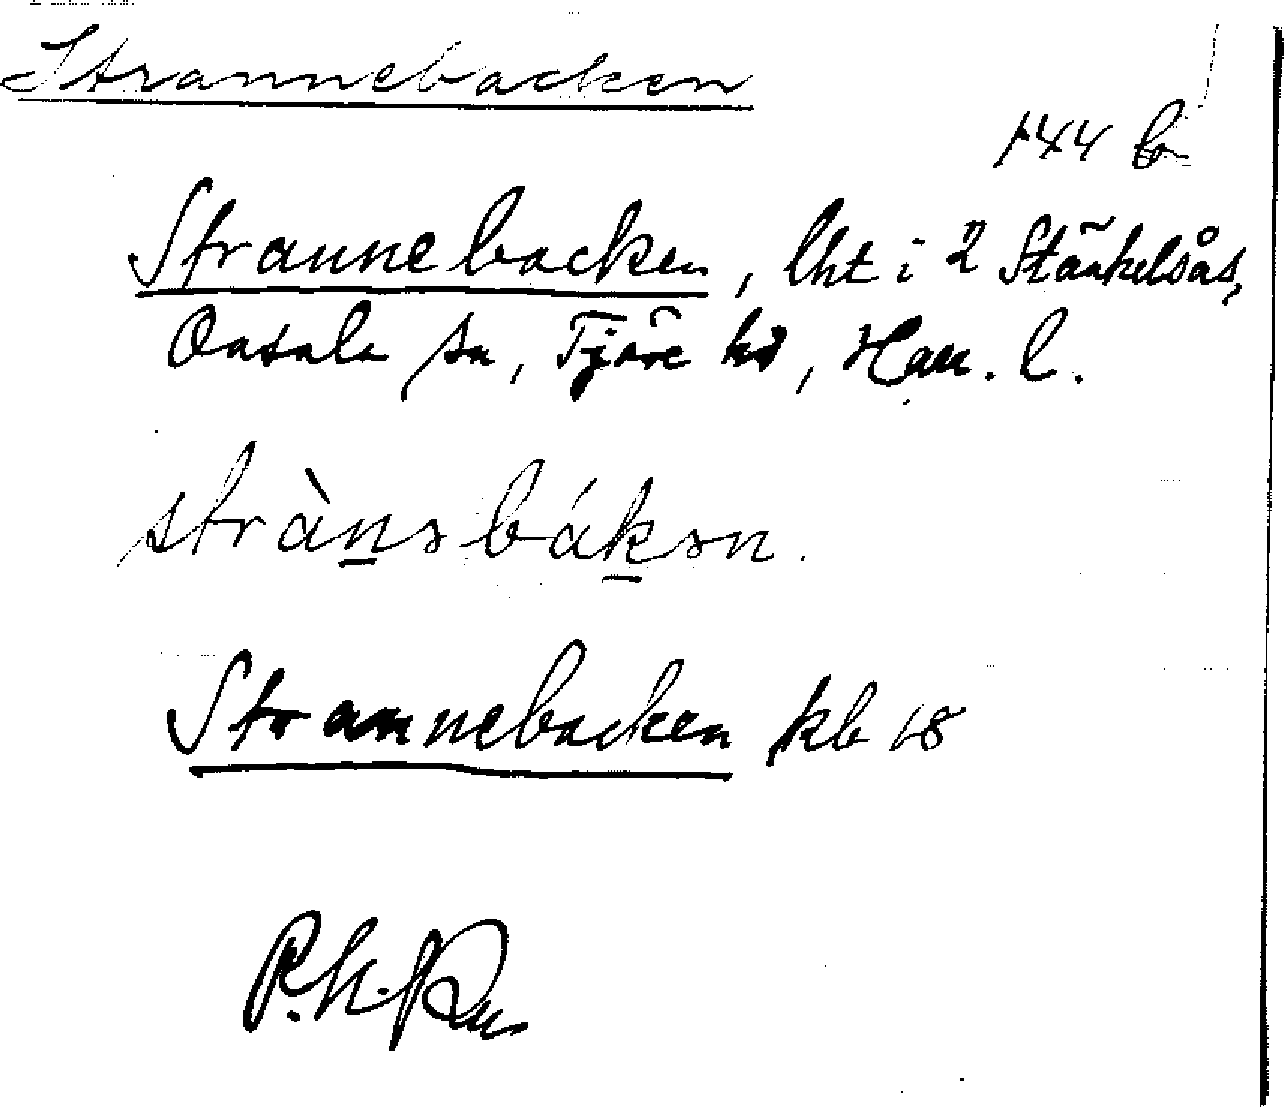 Strannebacken
144 b
Strannebacken, lht i 2 Stänkelsås,
Onsala sn, Fjäre hd, Hall. l.
strànsbáksn.
Strannebacken kb 18